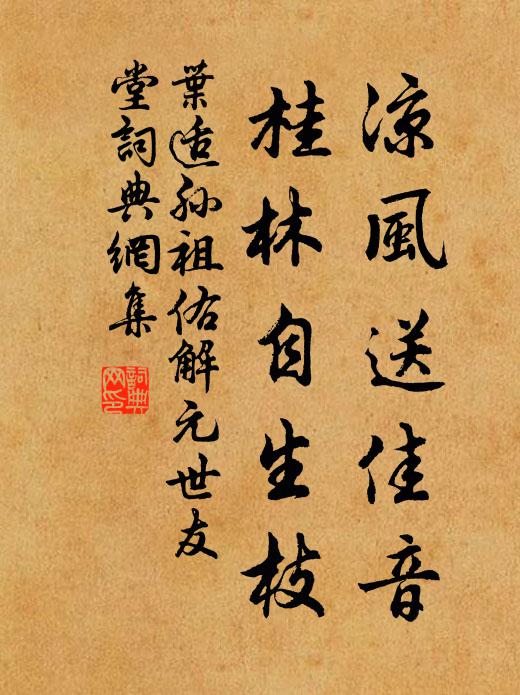 凉風送佳音
桂林自生枝
葉适孙祖佑解元世友
堂詞典網集
詞典網印